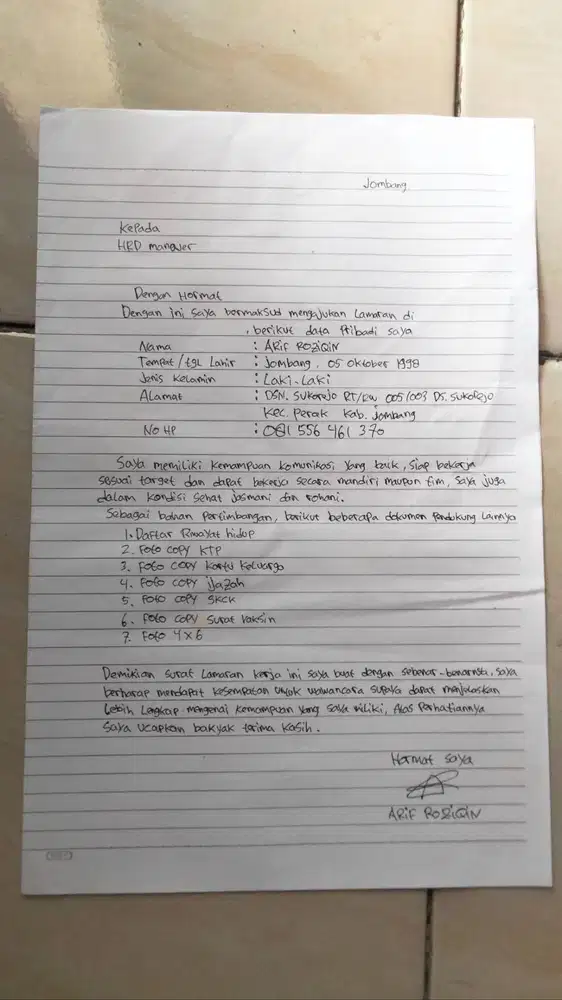 Jombang
Kepada
HRD manager
Dengan Hormat
Dengan ini saya bermaksud mengajukan Lamaran di
, berikut data Pribadi saya
Nama : ARIF ROZIQIN
Tempat / tgl Lahir : Jombang, 05 Oktober 1998
Jenis Kelamin : Laki-Laki
Alamat : DSN. Sukorejo RT/RW 005/003 DS. Sukorejo
Kec. Perak Kab. Jombang
No HP : 081 556 461 370
Saya memiliki kemampuan komunikasi yang baik, siap bekerja
sesuai target dan dapat bekerja secara mandiri maupun tim, saya juga
dalam kondisi sehat jasmani dan rohani.
Sebagai bahan Pertimbangan, berikut beberapa dokumen Pendukung Lainnya
1. Daftar Riwayat hidup
2. Foto copy KTP
3. Foto copy kartu keluarga
4. Foto copy ijazah
5. Foto copy SKCK
6. Foto copy surat vaksin
7. Foto 4x6
Demikian surat Lamaran kerja ini saya buat dengan sebenar-benarnya, saya
berharap mendapat kesempatan untuk wawancara supaya dapat menjelaskan
Lebih Lengkap mengenai kemampuan yang saya miliki, Atas Perhatiannya
saya ucapkan bakyak terima kasih.
Hormat saya
ARIF ROZIQIN